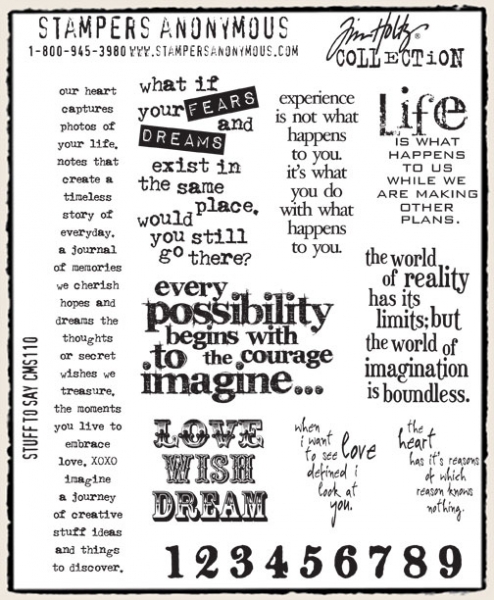 STAMPERS ANONYMOUS
1-800-945-3980 WWW.STAMPERSANONYMOUS.COM
Tim Holtz®
COLLECTION
our heart
captures
photos of
your life.
notes that
create a
timeless
story of
everyday.
a journal
of memories
we cherish
hopes and
dreams the
thoughts
or secret
wishes we
treasure.
the moments
you live to
embrace
love. XOXO
imagine
a journey
of creative
stuff ideas
and things
to discover.
STUFF TO SAY CMS110
what if
your FEARS
and
DREAMS
exist in
the same
place.
would
you still
go there?
experience
is not what
happens
to you.
it's what
you do
with what
happens
to you.
Life
IS WHAT
HAPPENS
TO US
WHILE WE
ARE MAKING
OTHER
PLANS.
every
possibility
begins with
to the courage
imagine...
the world
of reality
has its
limits; but
the world of
imagination
is boundless.
LOVE
WISH
DREAM
when
i want
to see love
defined i
look at
you.
the
heart
has it's reasons
of which
reason knows
nothing.
1 2 3 4 5 6 7 8 9